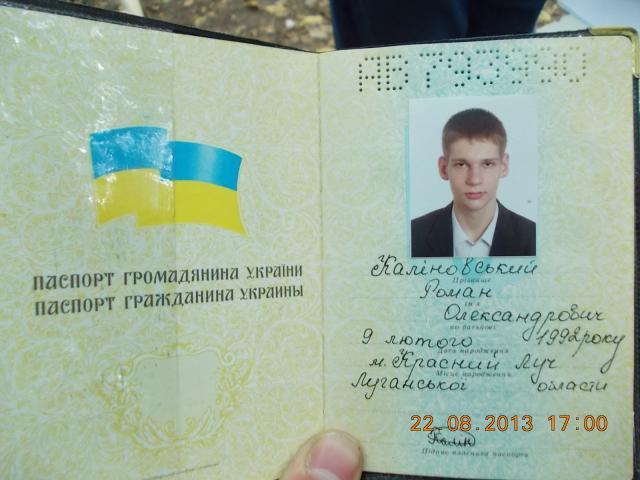 ПАСПОРТ ГРОМАДЯНИНА УКРАЇНИ
ПАСПОРТ ГРАЖДАНИНА УКРАИНЫ
Каліновський
Прізвище
Роман
Ім'я
Олександрович
по батькові
9 лютого 1992 року
Дата народження
м. Красний Луч
Місце народження
Луганської області
22.08.2013 17:00
Підпис власника паспорта